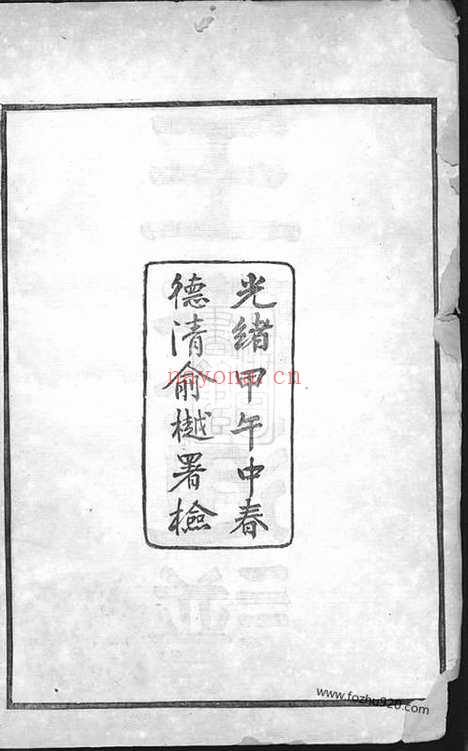 光緒甲午中春
德清俞樾署檢
nayona.cn
www.fozhu920.com